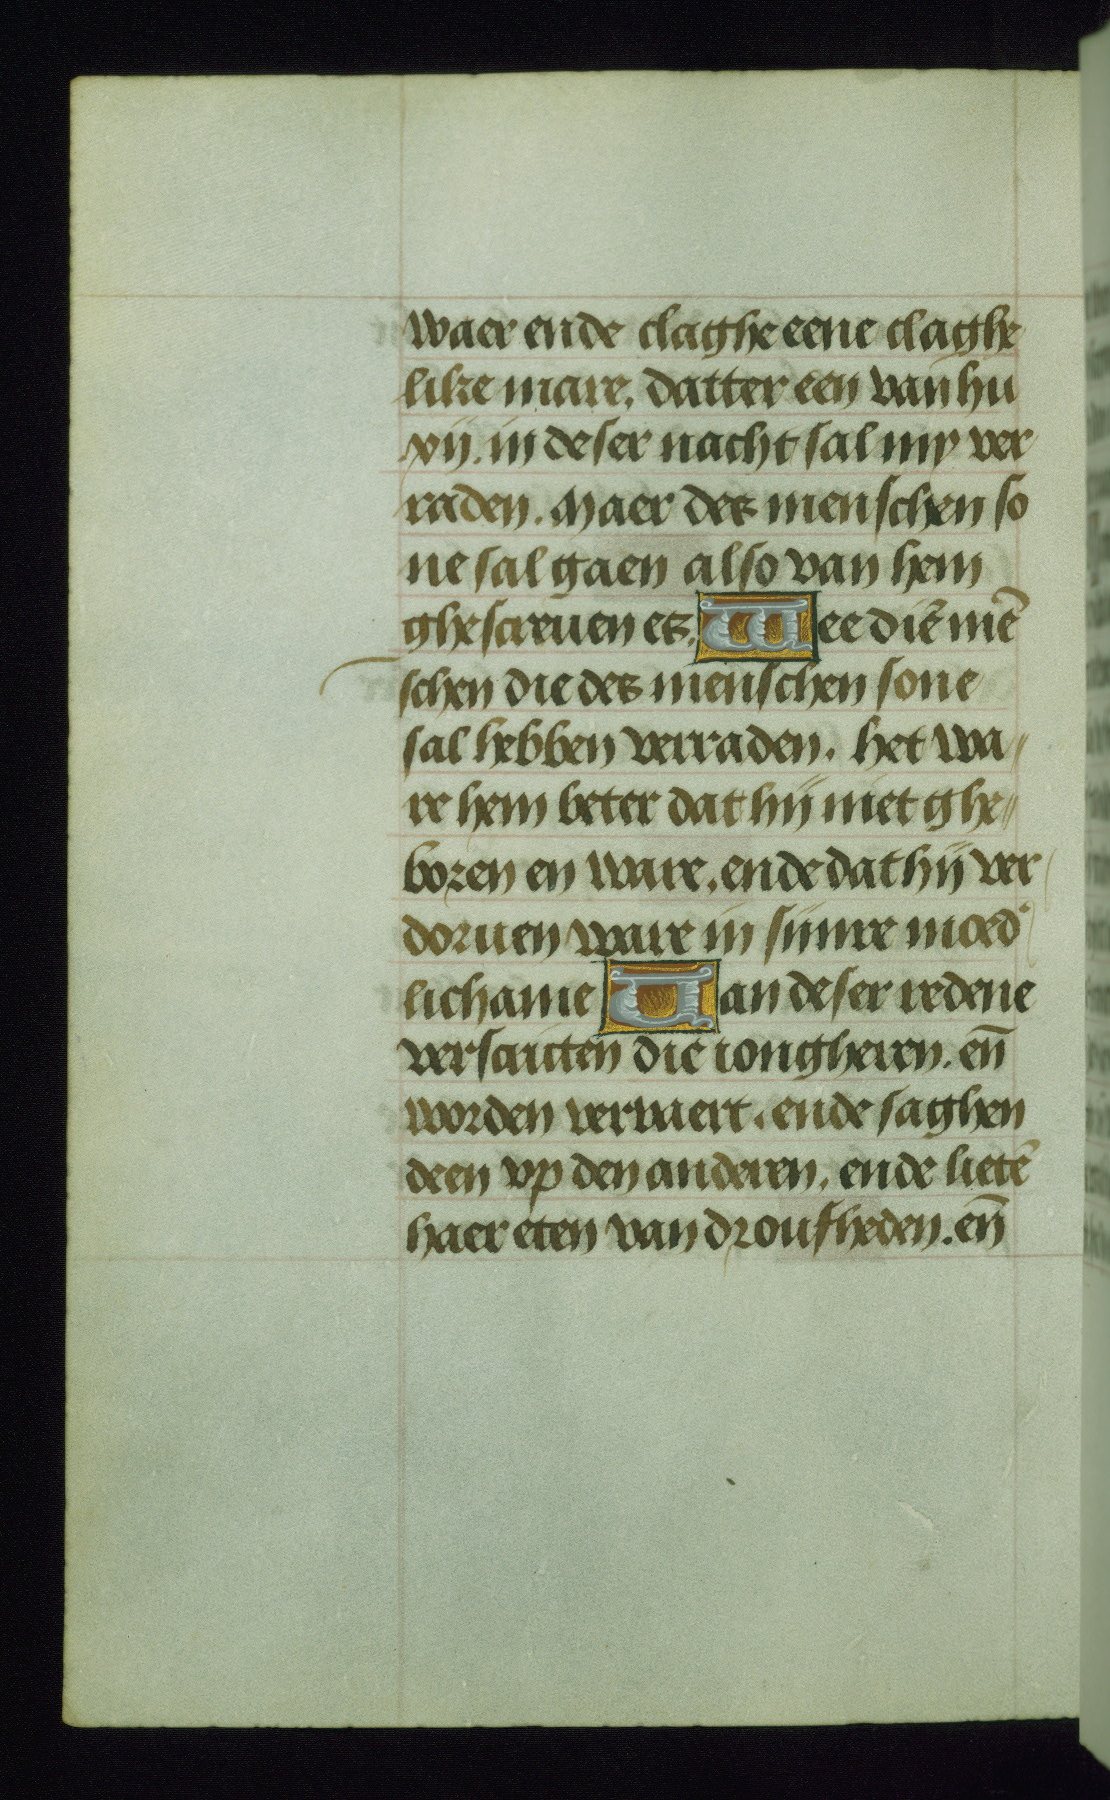 waer ende claghe eene claghe
like mare. datter een van hu
xij. in deser nacht sal my ver
raden. Maer des menschen so
ne sal gaen also van hem
ghescreuen es. Wee diē mē
schen die des menschen sone
sal hebben verraden. het wa〃
re hem beter dat hij niet ghe〃
boren en ware. ende dat hij ver
doruen ware in sijnre moed'
lichame Uan deser redene
verscricten die iongheren. en̄
worden vervaert. ende saghen
deen vp den anderen. ende lietē
haer eten van droufheden. en̄